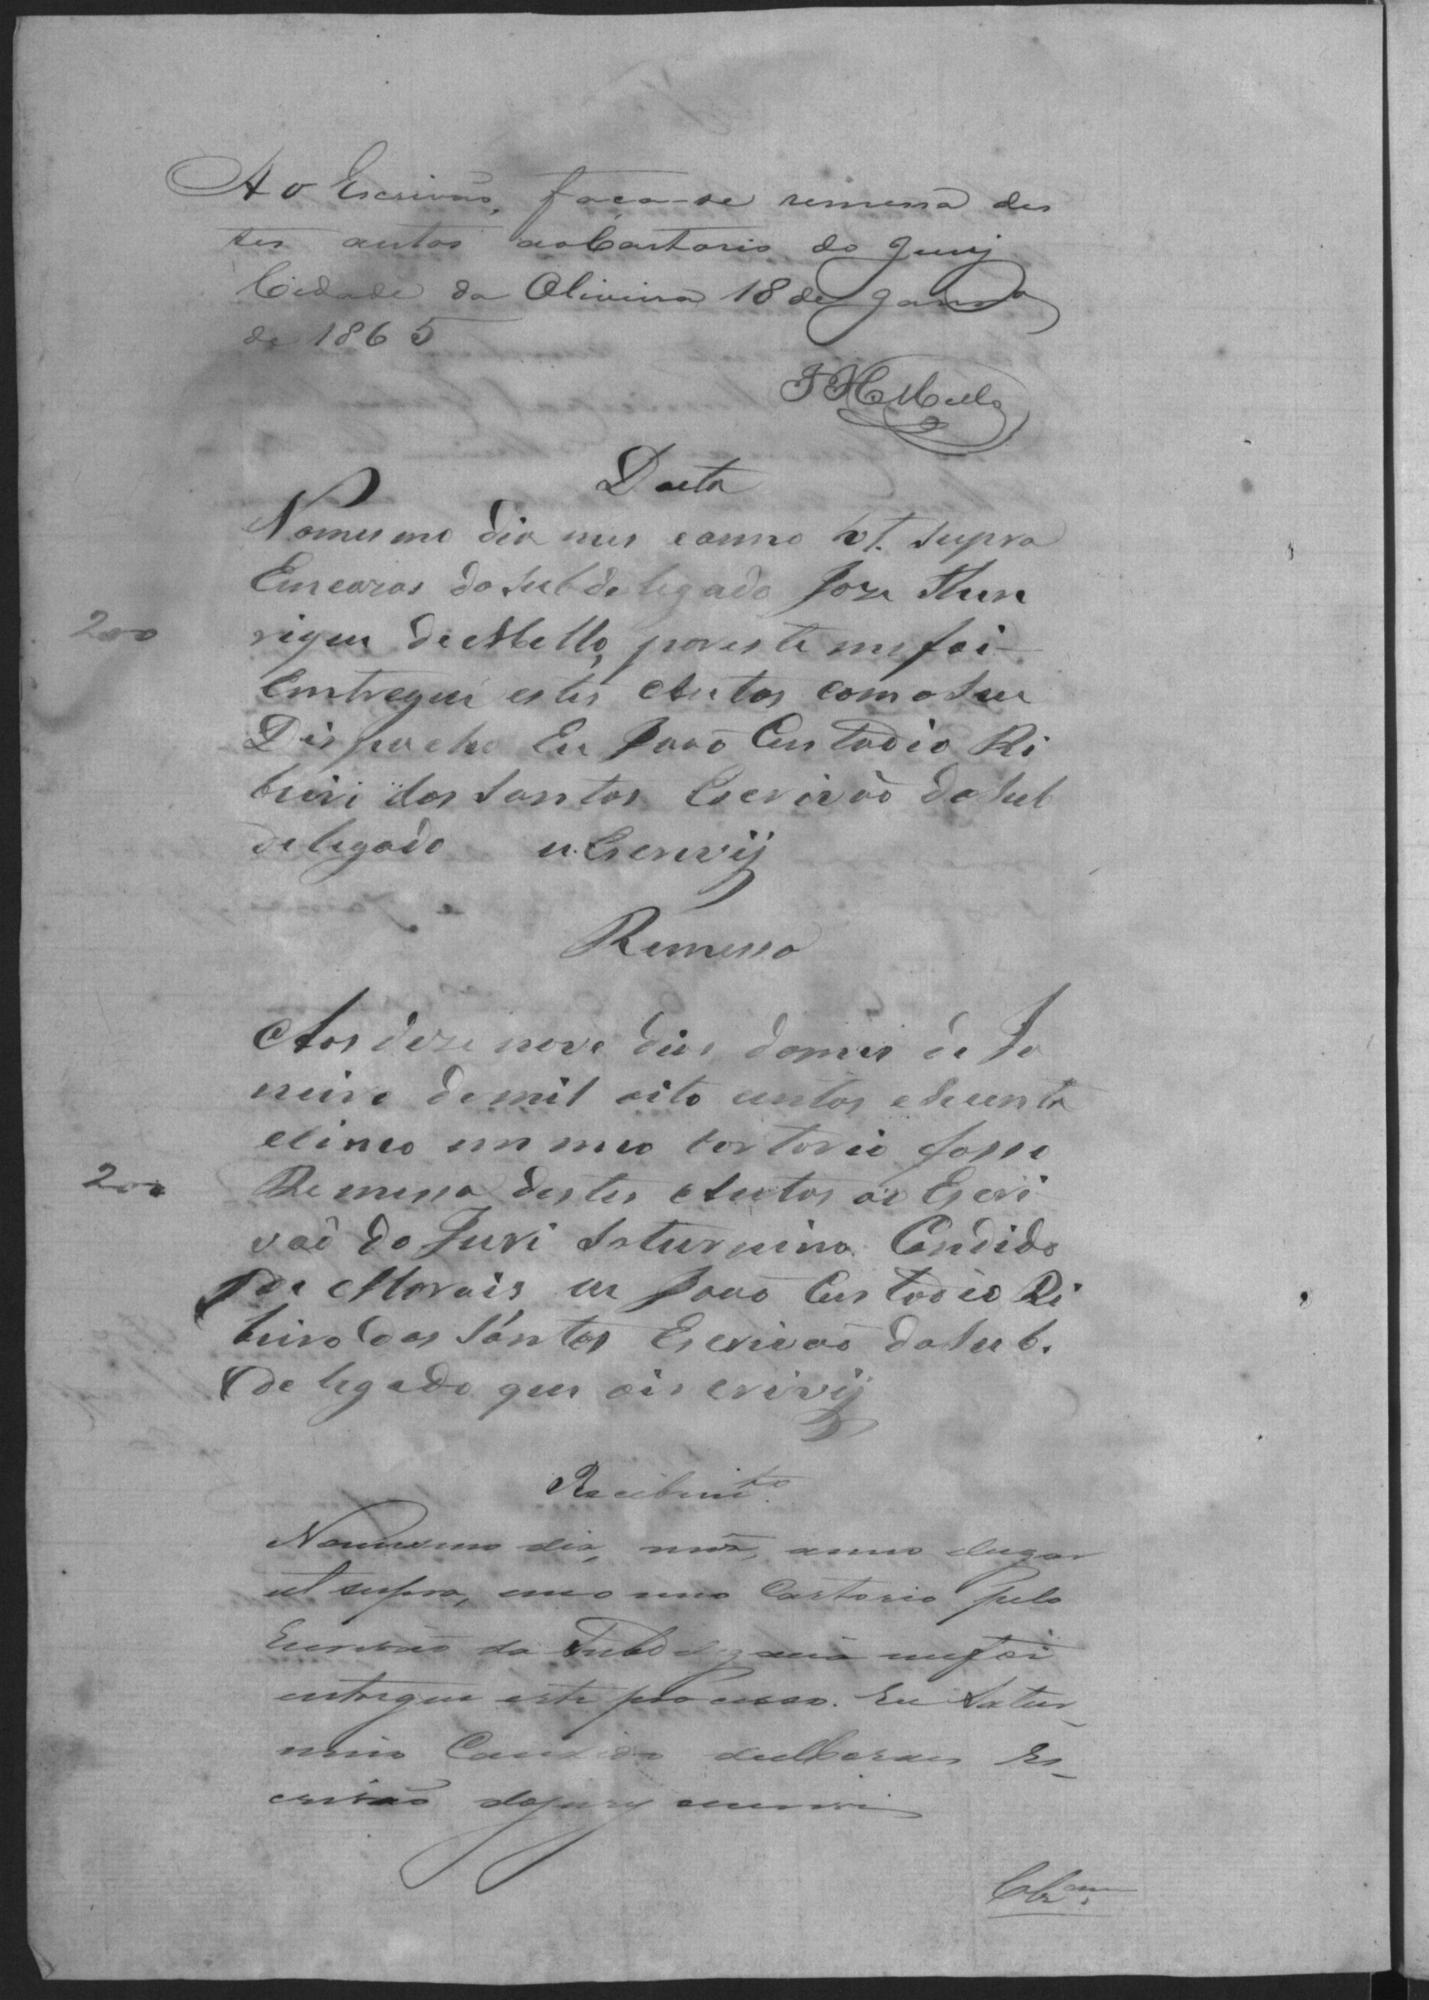 Ao Escrivão, faça-se remessa des
tes autos ao Cartorio do Jury
Cidade da Oliveira 18 de Janro
de 1865
J H Mello
Dacta
Nomesmo dia mes eanno ut supra
Emcazas do Subdelegado Joze Hen
200
rique de Mello, poreste mefoi
Emtregue estes Autos com o Seu
Dispacho Eu Joaõ Custodio Ri
beiri dos Santos Escrivaõ do Sub
delegado o Escrevij
Remessa
Aos deze nove dias domes de Ja
neiro demil oito centos eSecenta
eSinco em meo Cortorio fasso
200
Remessa destes Autos ao Escri
vaõ do Juri Saturnino Candido
de Morais eu Joaõ Custodio Ri
beiro dos Santos Escrivaõ do Sub.
delegado que oiscrivij
Recebimto
Nomesmo dia, mez, anno elugar
ut supra, em o meo Cartorio pelo
Escrivaõ da Subdelegacia mefoi
entregue este processo. Eu Satur_
nino Candido de Moraes Es_
crivaõ dojury escrevi
Clzam.